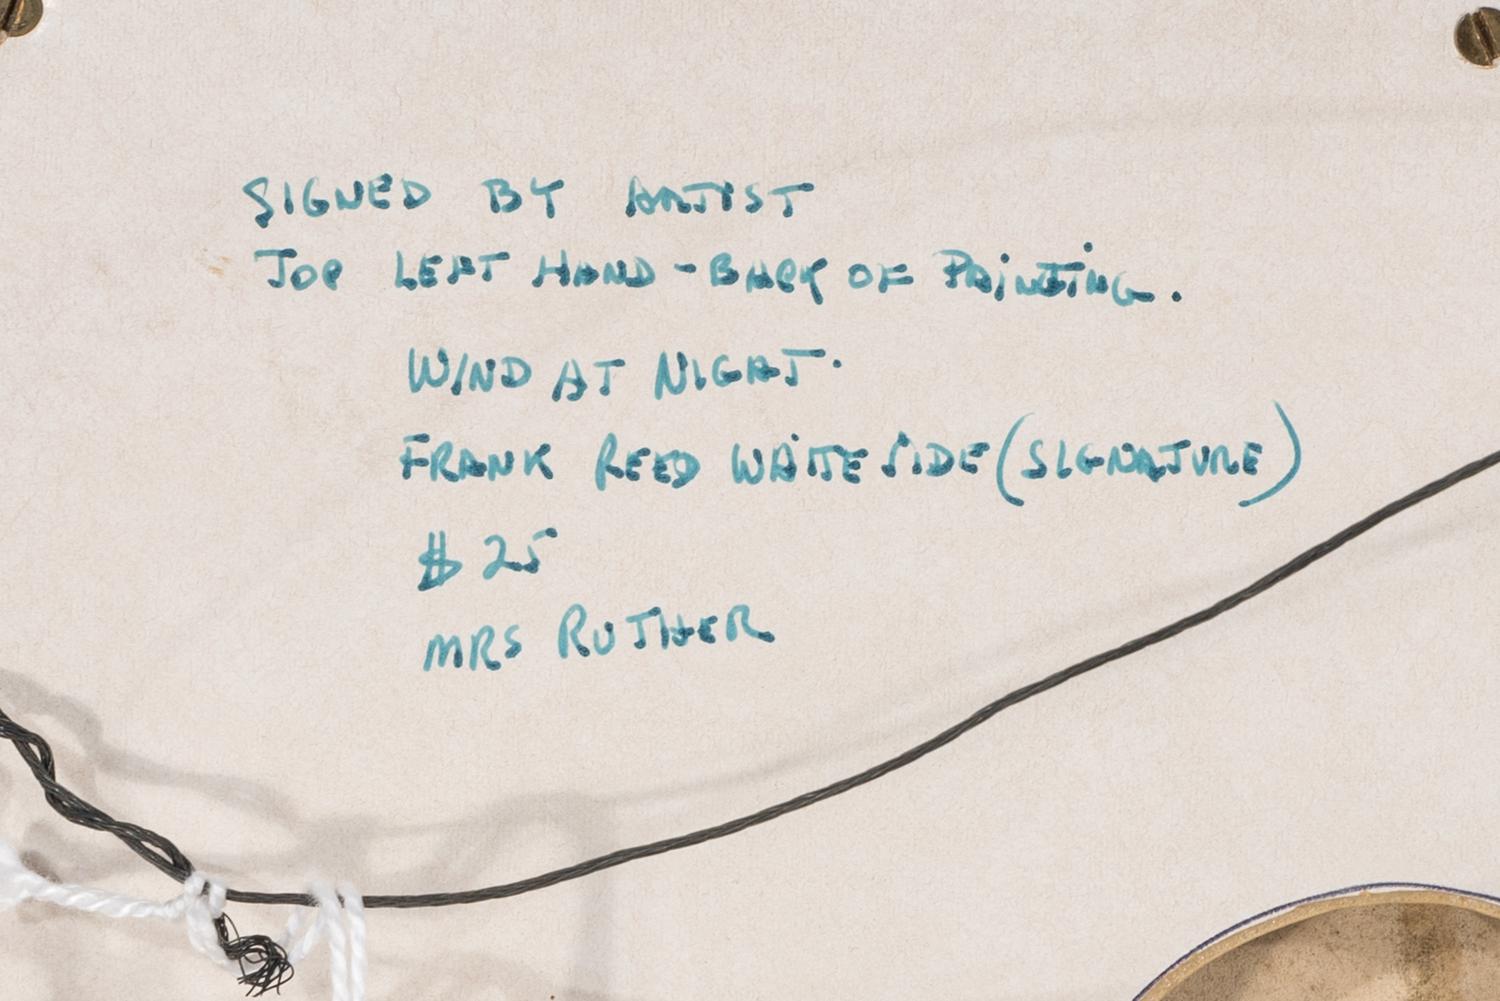 SIGNED BY ARTIST
TOP LEFT HAND - BACK OF PAiNTiNG.
WIND AT NIGHT.
FRANK REED WHITE SIDE (SIGNATURE)
$ 25
MRS RUTHER